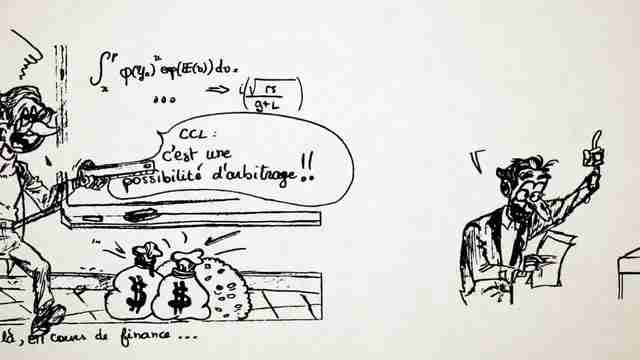 ∫ φ(y₀)ⁿ exp(E(ω)) dν.
... ⇒ i(√rs / g+L)
CCL :
c'est une
possibilité d'arbitrage !!
$ $
là, en cours de finance ...